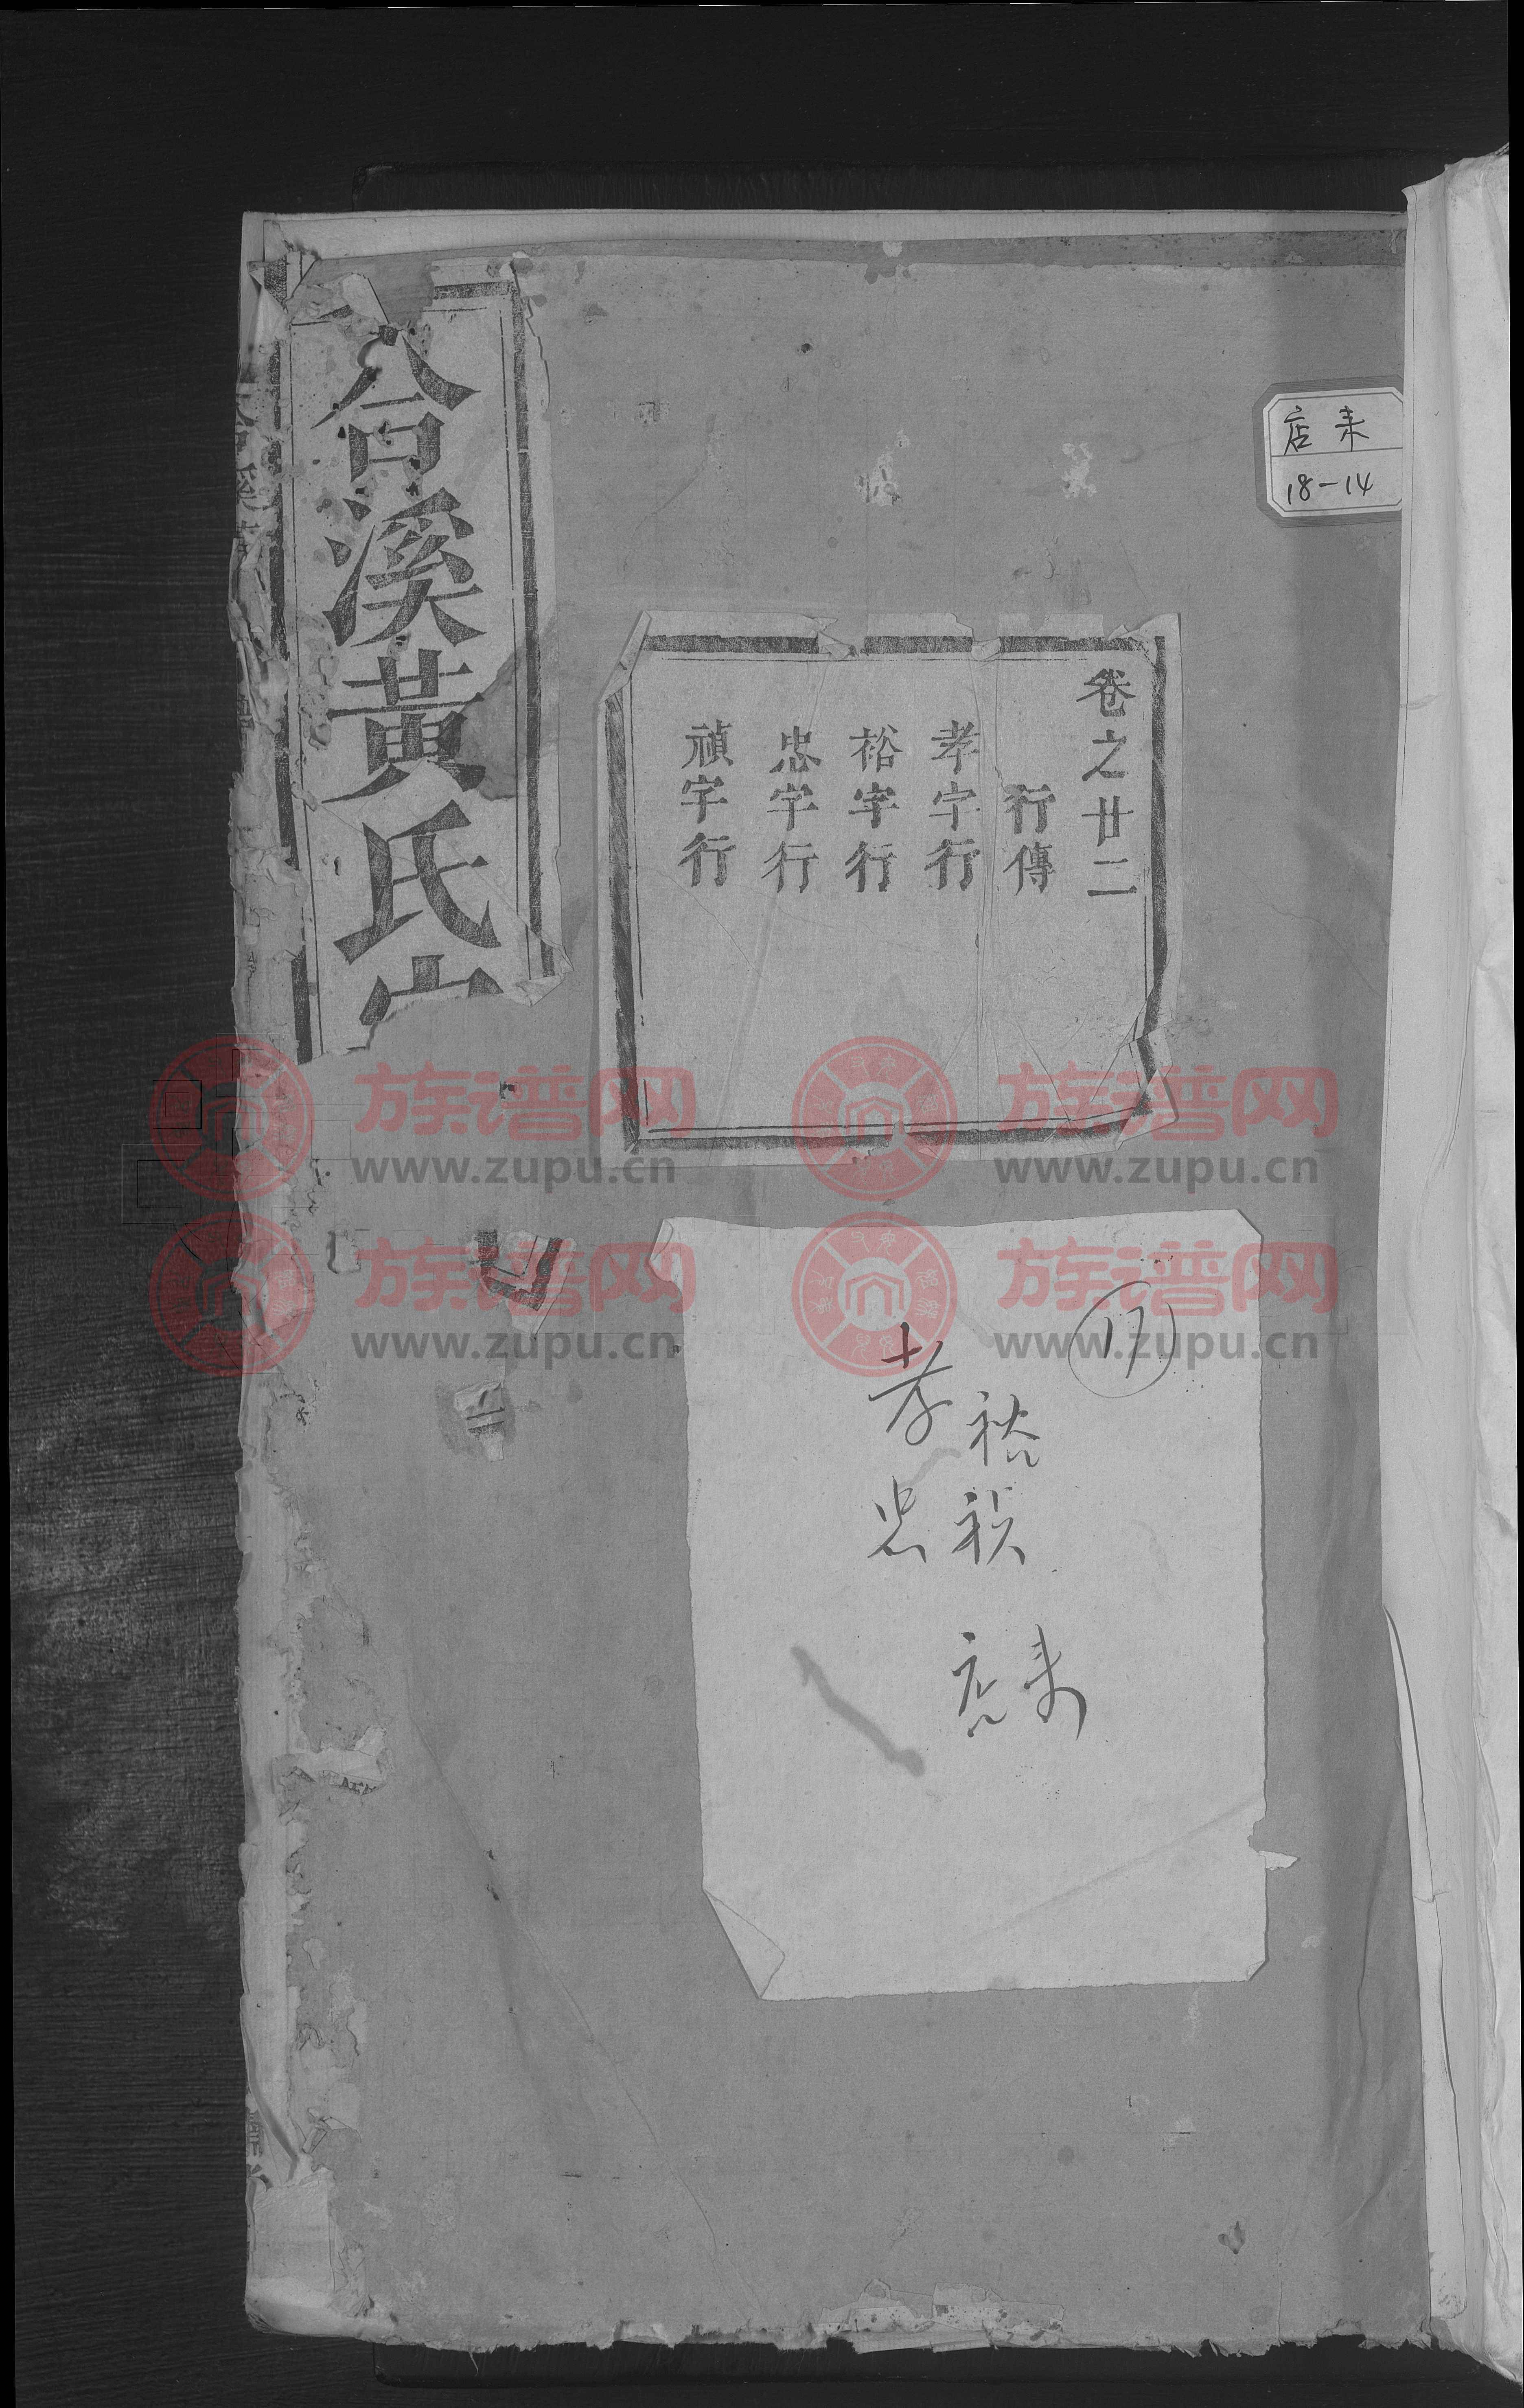 合溪黃氏宗
卷之廿二
行傳
孝字行
裕字行
忠字行
禎字行
店耒
18-14
17
孝裕
忠祯
店耒
族谱网
www.zupu.cn
族谱网
www.zupu.cn
族谱网
www.zupu.cn
族谱网
www.zupu.cn